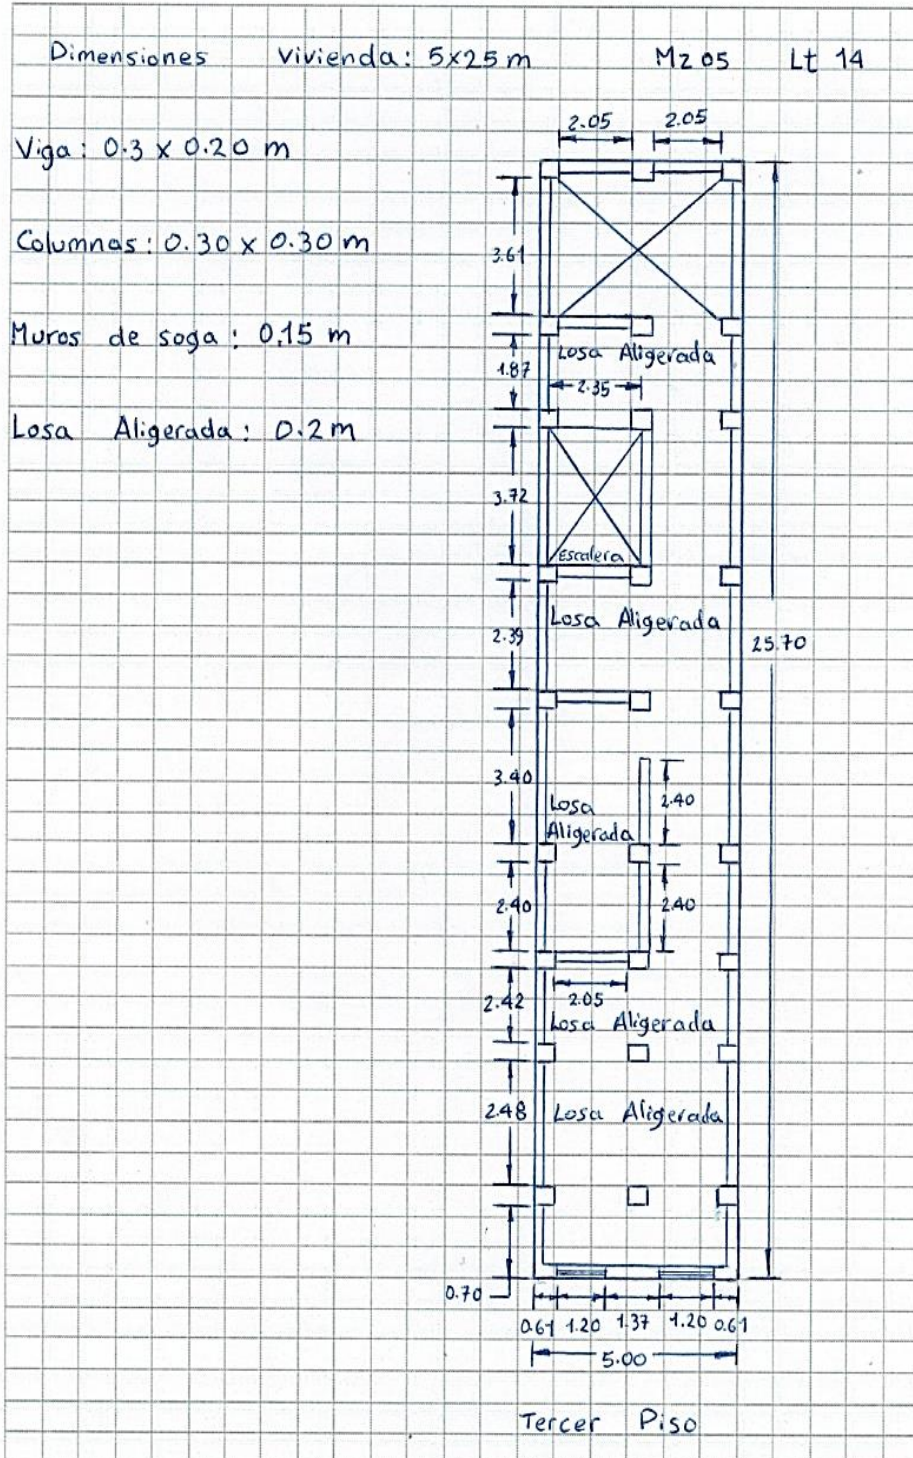 Dimensiones vivienda: 5x25 m Mz 05 Lt 14
Viga: 0.3 x 0.20 m
Columnas: 0.30 x 0.30 m
Muros de soga: 0.15 m
Losa Aligerada: 0.2 m
2.05 2.05
3.61
Losa Aligerada
1.87
2.35
3.72
Escalera
Losa Aligerada
2.39
25.70
3.40
2.40
Losa
Aligerada
2.40
2.40
2.42
2.05
Losa Aligerada
2.48
Losa Aligerada
0.70
0.61 1.20 1.37 1.20 0.61
5.00
Tercer Piso